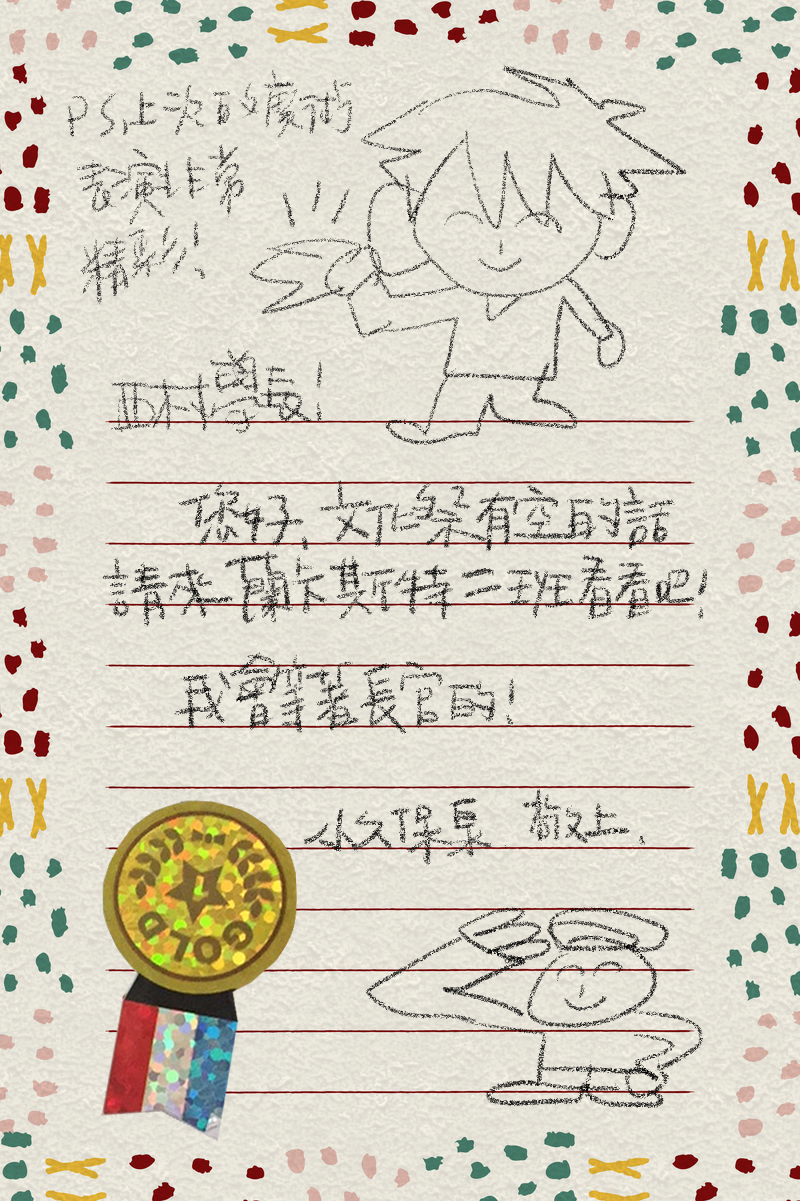 P.S.上次的魔術
表演非常
精彩!
亞村學長!
您好、文化祭有空的話
請來蘭卡斯特二班看看吧!
我會等著長官的!
小久保杲 敬上、
GOLD